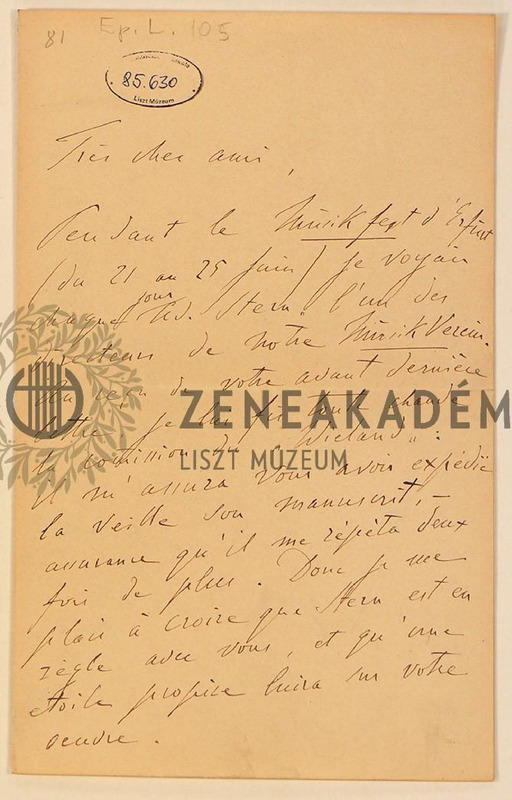 81 Ep. L. 105
85.630
Liszt Múzeum
Très cher ami,
Pendant le Musikfest d'Erfurt
(du 21 au 25 Juin) je voyais
chaque jour Ad. Stern „l'un des
directeurs de notre Musik Verein.
reçu de votre avant dernière
lettre je lui fis tout chaude
la comission du „Wieland":
il m'assura vous avoir expédié
la veille son manuscrit, –
assurance qu'il me répéta deux
fois de plus. Donc je me
plais à croire que Stern est en
règle avec vous, et qu'une
étoile propice luira sur votre
oeuvre.
ZENEAKADÉM
LISZT MÚZEUM